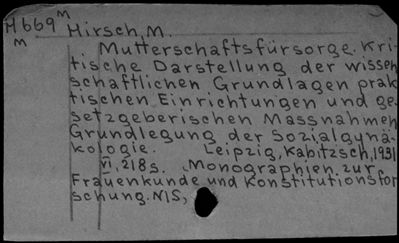 H669 M Hirsch, M.
M
Mutterschaftsfürsorge. Kri-
tische Darstellung der wissen
schaftlichen Grundlagen prak
tischen Einrichtungen und ge
setzgeberischen Massnahmen
Grundlegung der Sozialgynä-
kologie. Leipzig, Kabitzsch, 1931
VI, 218 s. Monographien zur
Frauenkunde und Konstitutionsfor
schung. N15,